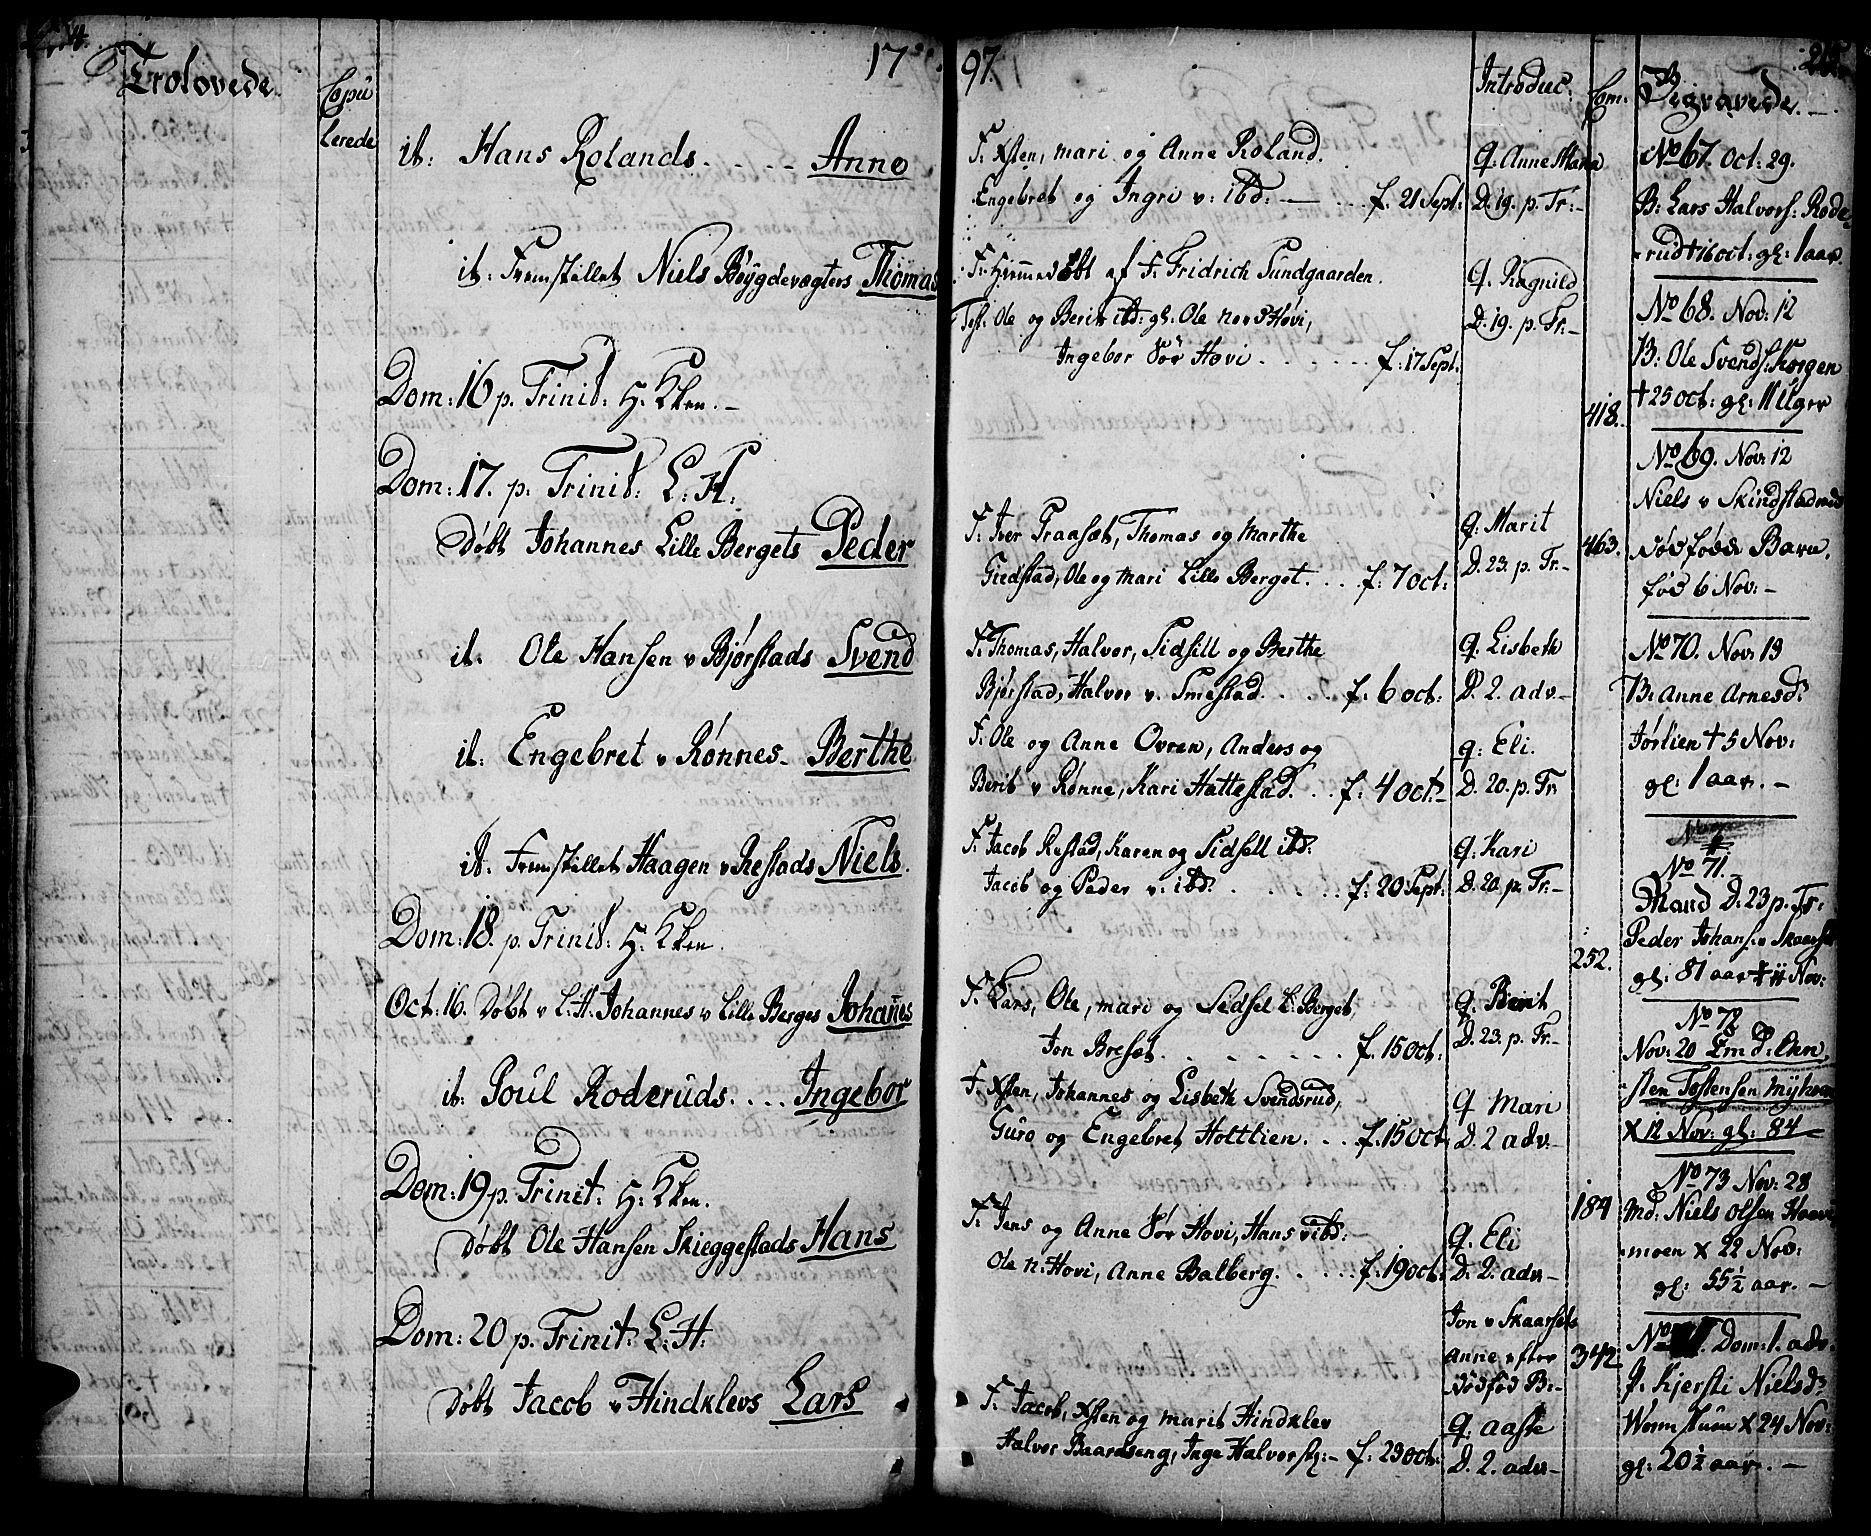 Trolovede
Copu
lerede
17
it: Hans Rolands. . . . Anne
it: Fremstillet Niels Bøygdevægters Thomas
Dom: 16 p. Trinit: H: Kken. –
Dom: 17. p. Trinit: L: H:
Døbt Johannes Lille Bergets Peder
it. Ole Hansen v Bjørstads Svend
it: Engebret v Rønnes – Berthe
it: Fremstillet Haagen v Restads Niels.
Dom: 18. p. Trinit: H: Kken.
Oct: 16. Døbt v L: H: Johannes v Lille Berges Johanes
it: Poul Roderuds. . . . Ingebor
Dom: 19 p. Trinit: H: Kken.
Døbt Ole Hansen Skieggestads Hans
Dom: 20 p. Trinit: L: H:
Døbt Jacob v Hindklevs Lars
97.
F: Xsten, mari og Anne Roland.
Engebret og Ingri v: ibd: — . . . f. 21 Sept:
F: Hjemmedøbt af F. Fridrich Sundgaarden.
Test: Ole og Berit ibd: gl: Ole nord Hovi,
Ingebor Sør Hovi . . . . . . f: 17 Sept:
F: Iver Transæt, Thomas og Marthe
Gredstad, Ole og Mari Lille Berget. . . f: 7 oct:
F: Thomas, Halvor, Sidsill og Berthe
Bjørstad, Halvor v. Smestad. . . . . f. 6 oct:
F: Ole og Anne Ovren, Anders og
Berit v Rønne, Kari Hattestad. . . f: 4 oct:–
F: Jacob Restad, Karen og Sidsell ibd:
Jacob og Peder v: ibd: . . . . . . f: 20 Sept:
F. Lars, Ole, mari og Sidsel L: Berget,
Jon Bresæt. . . . . . . . f. 15 Oct:
F: Xsten, Johannes og Lisbeth Svendsrud,
Guro og Engebret Holtlien. . . f. 15 Oct:
F. Jens og Anne Sør Hovi, Hans v ibd:
Ole n: Hovi, Anne Balberg. . . . . f. 19 oct:
F. Jacob, Xsten og marit Hindklev
Halvor Baardseng, Inge Halvors – f: 23 oct:
Introduc:
Q. Anne Maria
D. 19. p. Tr: –
Q. Ragnild
D. 19. p. Tr. –
q: Marit
D. 23. p. Tr. –
q. Lisbeth
D. 2. adv –
q: Eli.
D. 20. p. Tr
q: Kari
D. 20. p. Tr. –
q: Berit
D. 23. p. Tr. –
q Mari
D. 2 adv –
q. Eli
D. 2. adv –
Jon v Skaarsets
Anne efter
Dødfød B: –
q. aaste
D. 2. adv –
Com.
418.
463.
252.
184
342
Begravede. –
No 67. Oct: 29.
B: Lars Halvors: Rode
rud † 16 oct: gl: 1 aar.
No 68. Nov: 12
B: Ole Svends: Korgen
† 25 Oct: gl: 11 Uger
No 69. Nov: 12
Niels v Skindstadmod
Nøvfødde Barn.
fød 6 Nov: –
No 70. Nov: 19
B: Anne Arnesd:
Jørlien † 5 Nov:
gl: 1 aar. –
No 71.
Mand D. 23 p. Tr:
Peder Johans: v Skaarset
gl: 81 aar † 11 Nov:
No 72
Nov: 20
sten Tostensen Myhren
X 12 Nov: gl: 84 –
No 73 Nov: 28
Md: Niels Olsen Haave
moen X 22 Nov:
gl: 55 ½ aar. –
No Dom: 1. adv.
P: Kjersti Nielsd:
Worm stuen X 24 Nov:
gl: 20 ½ aar. –